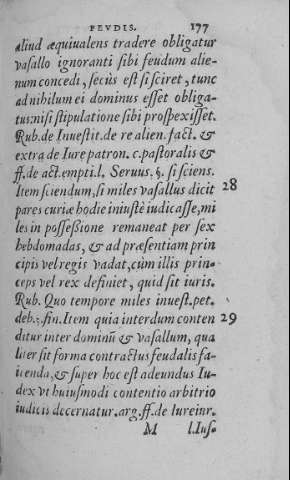 FEVDIS. 177
aliud æquiualens tradere obligatur
vasallo ignoranti sibi feudum alie-
num concedi, secùs est si sciret, tunc
ad nihilum ei dominus esset obliga-
tus: nisi stipulatione sibi prospexisset.
Rub. de Inuestit. de re alien. fact. &
extra de Iure patron. c. pastoralis &
ff. de act. empti. l. Seruus. §. si sciens.
Item sciendum, si miles vasallus dicit 28
pares curiæ hodie iniustè iudicasse, mi
les in possessione remaneat per sex
hebdomadas, & ad præsentiam prin
cipis vel regis vadat, cùm illis prin-
ceps vel rex definiet, quid sit iuris.
Rub. Quo tempore miles inuest. pet.
deb. §. fin. Item quia interdum conten 29
ditur inter dominũ & vasallum, qua
liter sit forma contractus feudalis fa-
cienda, & super hoc est adeundus Iu-
dex vt huiusmodi contentio arbitrio
iudicis decernatur. arg. ff. de Iureiur.
M l. Ius-